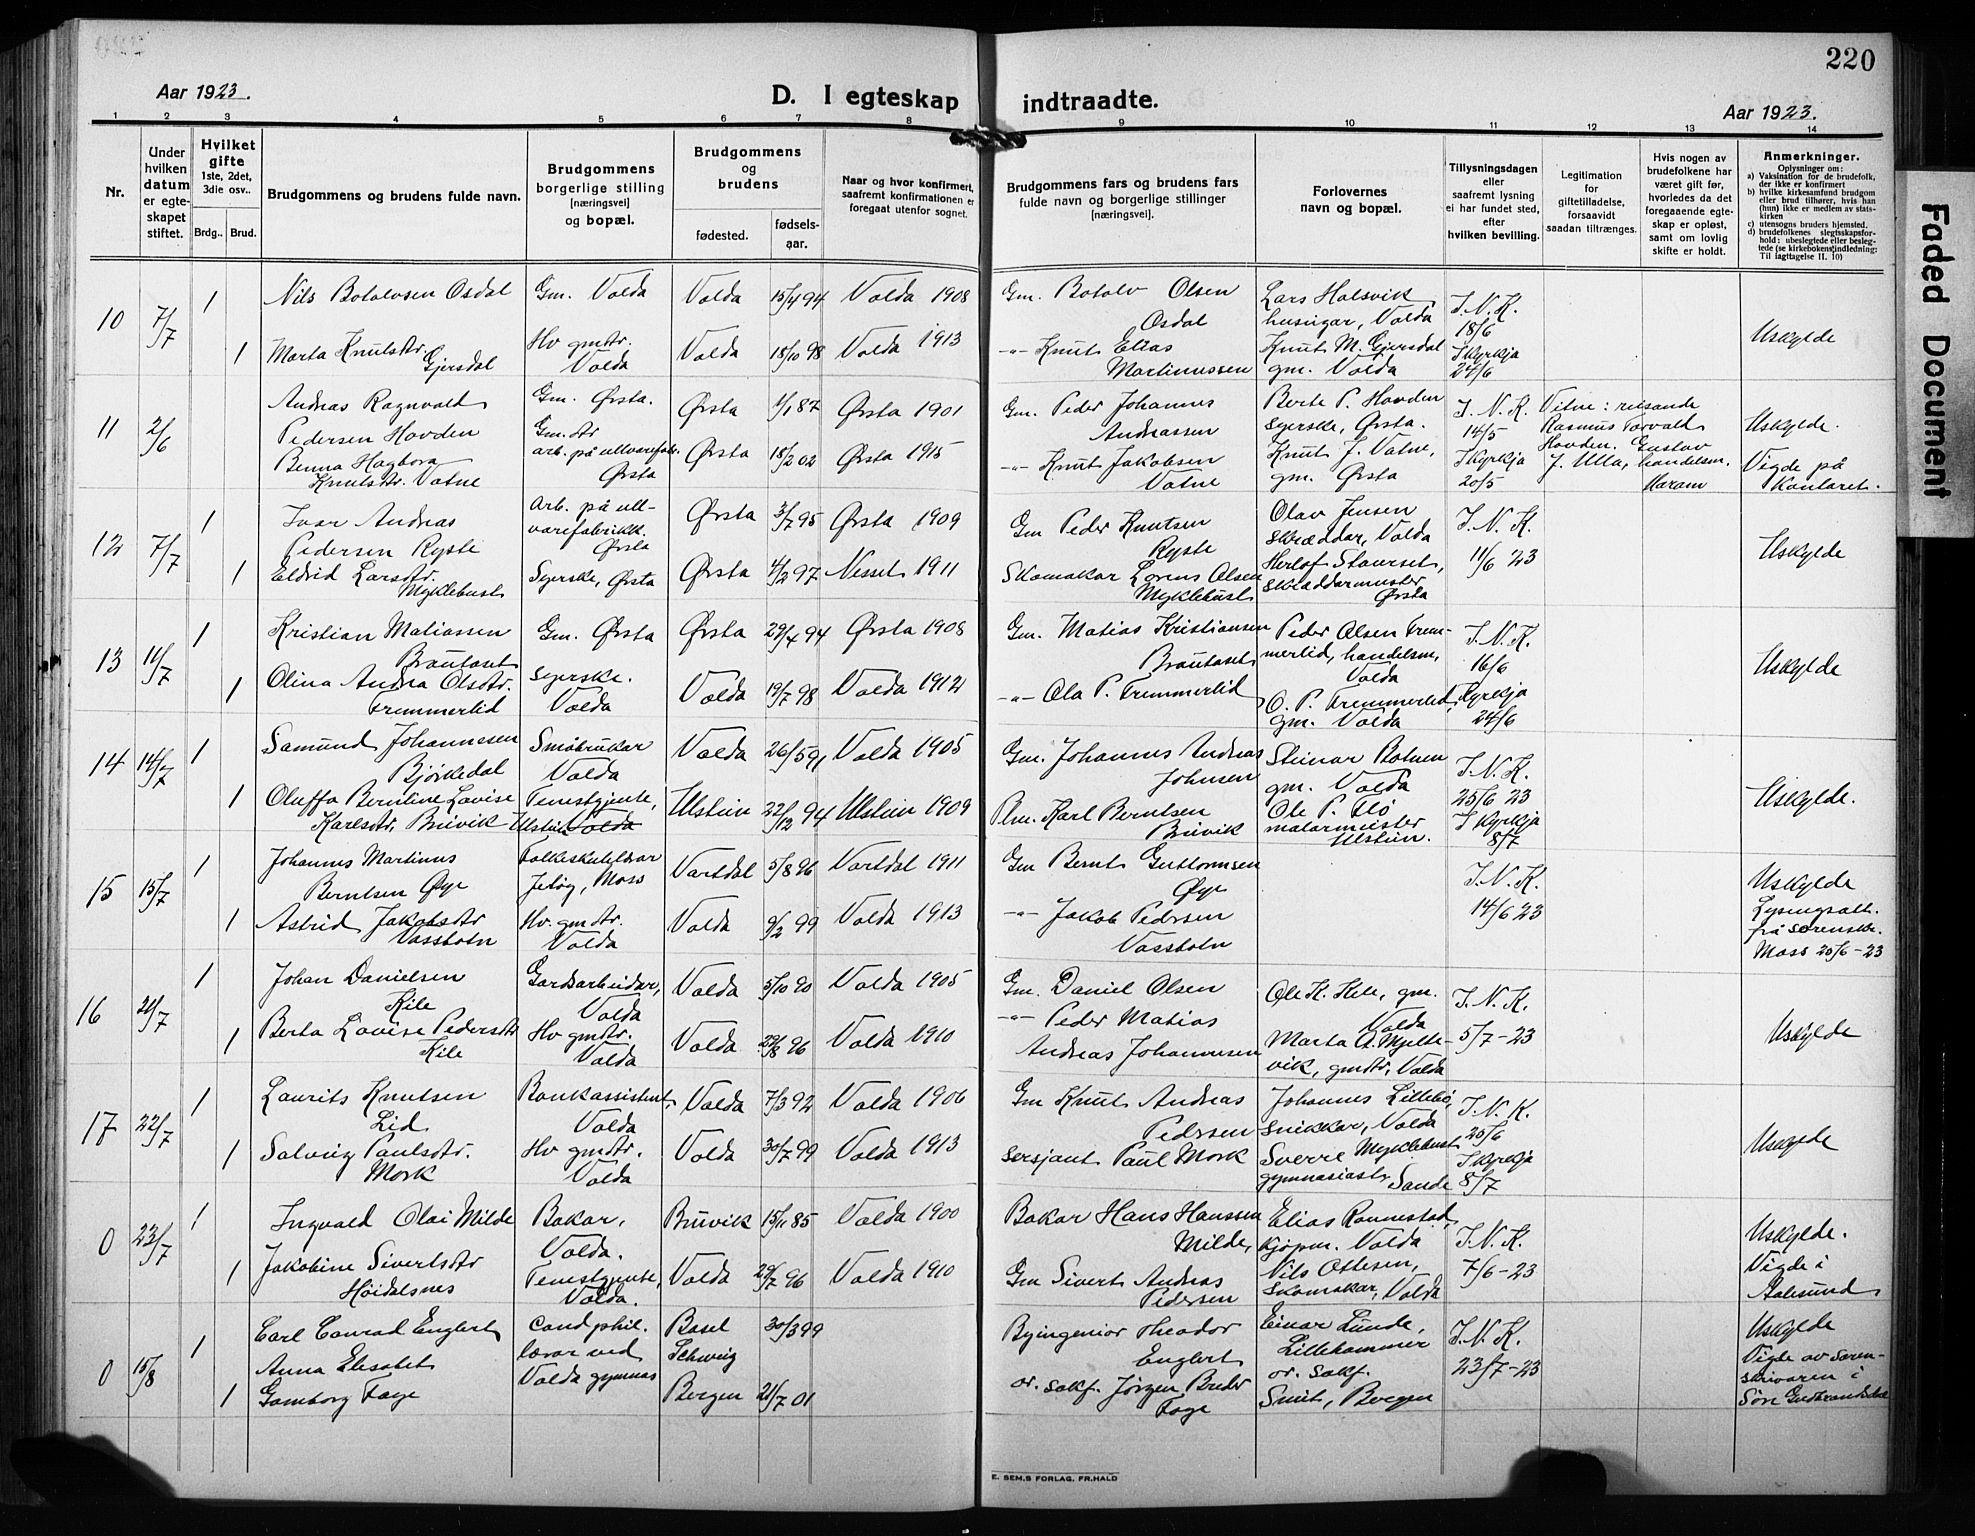 220
Aar 1923.
D. I egteskap indtraadte.
Aar 1923.
1 2 3 4 5 6 7 8 9 10 11 12 13 14
Nr.
Under hvilken datum er egteskapet stiftet.
Hvilket gifte
1ste, 2det, 3die osv..
Brdg.. Brud.
Brudgommens og brudens fulde navn.
Brudgommens borgerlige stilling
[næringsvei]
og bopæl.
Brudgommens og brudens
fødested.
fødsels-aar.
Naar og hvor konfirmert, saafremt konfirmationen er foregaat utenfor sognet.
Brudgommens fars og brudens fars fulde navn og borgerlige stillinger
[næringsvei].
Forlovernes navn og bopæl.
Tillysningsdagen eller saafremt lysning ei har fundet sted, efter hvilken bevilling.
Legitimation for giftetilladelse, forsaavidt saadan tiltrænges.
Hvis nogen av brudefolkene har været gift før, hvorledes da det foregaaende egteskap er opløst, samt om lovlig skifte er holdt.
Anmerkninger.
Oplysninger om:
a) Vaksination for de brudefolk, der ikke er konfirmert
b) hvilke kirkesamfund brudgom eller brud tilhører, hvis han (hun) ikke er medlem av statskirken
c) utensogns bruders hjemsted.
d) brudefolkenes slegtsskapsforhold: ubeslegtede eller beslegtede (se kirkebokens indledning: Til iagttagelse II. 10)
10 7/7 1 Nils Botolvsen Osdal Gm. Volda Volda 15/4 94 Volda 1908 Gm. Botolv Olsen Osdal Lars Halsvik huseigar, Volda I. N. K. 18/6
1 Marta Knutsdtr. Gjersdal Hv gmdtr. Volda Volda 18/10 98 Volda 1913 -"- Knut Elias Martinussen Knut M. Gjersdal gm. Volda I kyrkja 24/6 Uskylde
11 2/6 Andreas Ragnvald Pedersen Hovden Gm. Ørsta. Ørsta 1/1 87 Ørsta 1901 Gm. Peder Johannes Andreassen Berte P. Hovden syerske, Ørsta. I. N. K. 14/5
Benna Hagbora Knutsdtr. Vatne Gm.dtr arb. på ullvarefabr. Ørsta Ørsta 18/2 02 Ørsta 1915 -"- Knut Jakobsen Vatne Knut J. Vatne, gm. Ørsta I kyrkja 20/5
Vitne: reisande Rasmus Torvald Hovden. Gustav J. Ulla, handelsm. Haram
Uskylde. Vigde på kontoret.
12 7/7 1 Ivar Andreas Pedersen Ryste Arb. på ullvarefabrikk. Ørsta Ørsta 3/7 95 Ørsta 1909 Gm Peder Knutsen Ryste Olav Jensen skræddar, Volda I. N. K. 11/6 23
1 Eldrid Larsdtr. Myklebust Syerske, Ørsta Ørsta 4/2 97 Nesset 1911 Skomakar Lorens Olsen Myklebust Herlof Staurset, skræddarmeister Ørsta Uskylde
13 11/7 1 Kristian Matiassen Brautaset Gm. Ørsta Ørsta 29/4 94 Ørsta 1908 Gm. Matias Kristiansen Brautaset Peder Olsen Tremmerlid, handelsm, Volda I. N. K. 16/6
1 Olina Andrea Olsdtr. Tremmerlid syerske. Volda Volda 19/7 98 Volda 1912 -"- Ola P. Tremmerlid O. P. Tremmerlid, gm. Volda I kyrkja 24/6 Uskylde
14 14/7 1 Samund Johannesen Bjørkedal Småbrukar Volda Volda 26/5 91 Volda 1905 Gm. Johannes Andreas Johnsen Steinar Botnen gm. Volda I. N. K. 25/6 23
1 Oluffa Berntine Lovise Karlsdtr. Brüvik Tenestgjente, Ulstein Volda Ulstein 22/12 94 Ulstein 1909 Plm. Karl Berntsen Brüvik Ole P. Flø malarmeister Ulstein. I kyrkja 8/7 Uskylde.
15 15/7 1 Johannes Martinus Berntsen Øye Folkeskulelærar Jeløy, Moss Vartdal 5/8 96 Vartdal 1911 Gm Bernt Guttormsen Øye I. N. K. 14/6 23
1 Astrid Jakobsdtr Vassbotn Hv. gmdtr. Volda Volda 9/2 99 Volda 1913 -"- Jakob Pedersen Vassbotn
Uskylde Lysingsatt. frå sorenskr. Moss 20/6-23
16 21/7 1 Johan Danielsen Kile Gardsarbeidar, Volda Volda 5/10 90 Volda 1905 Gm. Daniel Olsen Ole K. Kile, gm. Volda I. N. K.
1 Berta Lovise Pedersdtr Kile Hv gmdtr. Volda Volda 29/8 96 Volda 1910 -"- Peder Matias Andreas Johannesen Marta A. Mjelte-vik, gmdtr, Volda 5/7-23 Uskylde
17 22/7 1 Laurits Knutsen Lid Bankassistent, Volda Volda 7/3 92 Volda 1906 Gm Knut Andreas Pedersen Johannes Lillebø, snikkar, Volda I. N. K. 25/6
1 Solveig Paulsdtr. Mork Hv gmdtr. Volda Volda 30/7 99 Volda 1913 Sersjant Paul Mork Sverre Myklebust gymnasiast, Sande I kyrkja 8/7 Uskylde
0 23/7 1 Ingvald Olai Milde Bakar, Volda. Brüvik 15/11 85 Volda 1900 Bakar Hans Hanssen Milde, Elias Rannestad, kjøpm. Volda I. N. K.
1 Jakobine Sivertsdtr Höidalsnes Tenestgjente, Volda. Volda 29/7 96 Volda 1910 Gm Sivert Andreas Pedersen Nils Ottesen, skomakar, Volda 7/6-23
Uskylde. Vigde i Aalesund
0 15/8 1 Carl Conrad Englert Cand phil. lærar ved Volda gymnas Basel Schweiz 30/3 99 Byingeniør Theodor Englert Einar Lunde, Lillehammer I. N. K.
1 Anna Elisabet Gamborg Faye Bergen 21/7 01 or. sakf. Jørgen Breder Faye or. sakf. Smit, Bergen 23/7-23
Uskylde Vigde av Sorenskrivaren i Søre Gudbrandsdal
E. SEM.S FORLAG, FR.HALD
Faded Document